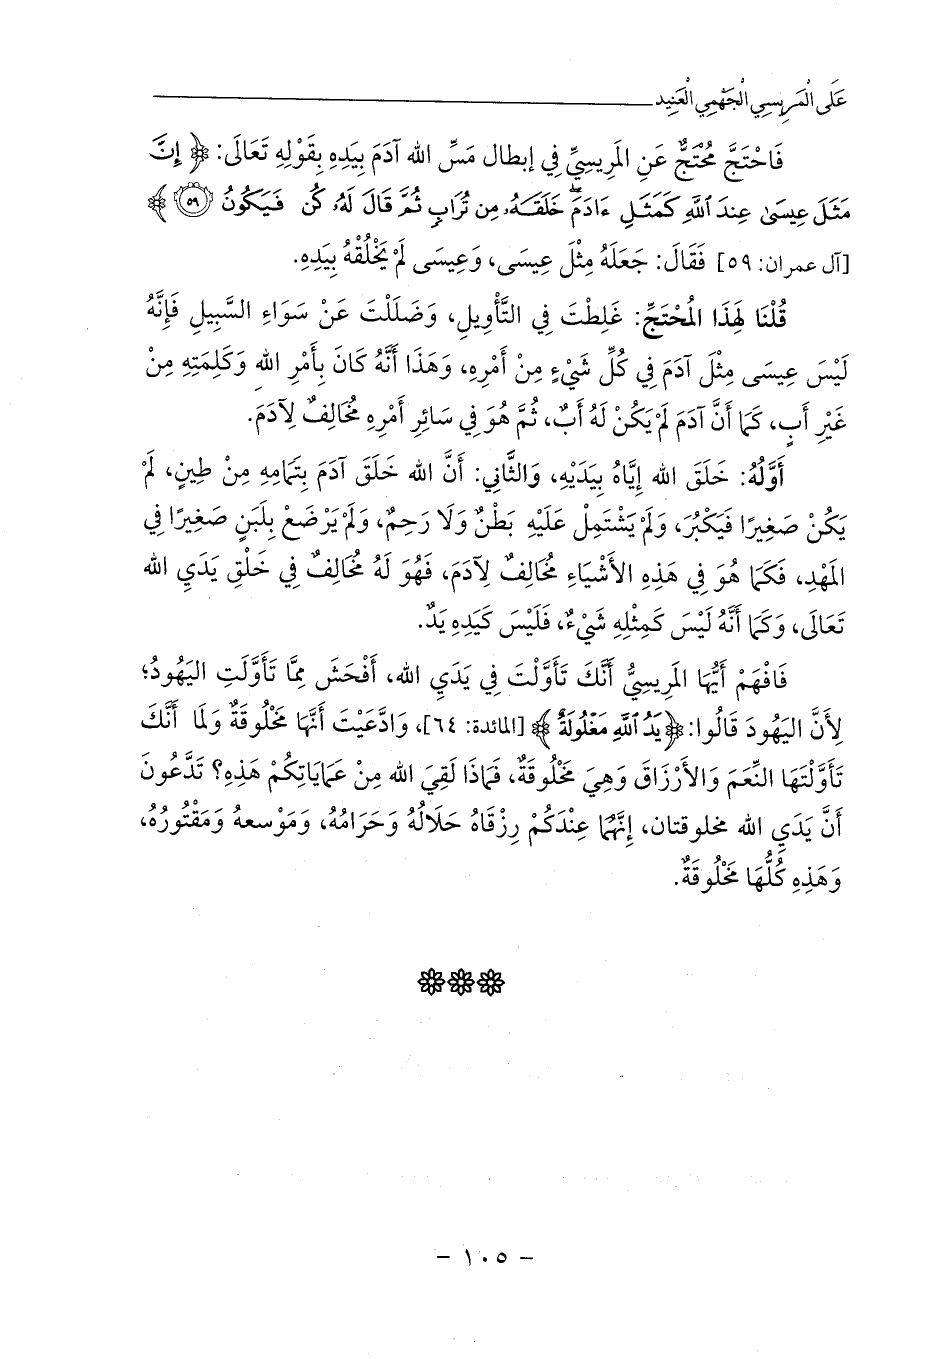 عَلَى الْمَرِيسِي الْجَهْمِي الْعَنِيد
فَاحْتَجَّ مُحْتَجٌّ عَنِ المَرِيسِيِّ فِي إبطال مَسِّ الله آدَمَ بِيَدِهِ بِقَوْلِهِ تَعَالَى: ﴿ إِنَّ
مَثَلَ عِيسَىٰ عِندَ ٱللَّهِ كَمَثَلِ ءَادَمَۖ خَلَقَهُۥ مِن تُرَابٍ ثُمَّ قَالَ لَهُۥ كُن فَيَكُونُ ٥٩ ﴾
[آل عمران: ٥٩] فَقَالَ: جَعَلَهُ مِثْلَ عِيسَى، وَعِيسَى لَمْ يَخْلُقْهُ بِيَدِهِ.
قُلْنَا لِهَذَا المُحْتَجِّ: غَلِطْتَ فِي التَّأْوِيلِ، وَضَلَلْتَ عَنْ سَوَاءِ السَّبِيلِ فَإِنَّهُ
لَيْسَ عِيسَى مِثْلَ آدَمَ فِي كُلِّ شَيْءٍ مِنْ أَمْرِهِ، وَهَذَا أَنَّهُ كَانَ بِأَمْرِ الله وَكَلِمَتِهِ مِنْ
غَيْرِ أَبٍ، كَمَا أَنَّ آدَمَ لَمْ يَكُنْ لَهُ أَبٌ، ثُمَّ هُوَ فِي سَائِرِ أَمْرِهِ مُخَالِفٌ لِآدَمَ.
أَوَّلُهُ: خَلَقَ الله إِيَّاهُ بِيَدَيْهِ، وَالثَّانِي: أَنَّ الله خَلَقَ آدَمَ بِتَمَامِهِ مِنْ طِينٍ، لَمْ
يَكُنْ صَغِيرًا فَيَكْبُرَ، وَلَمْ يَشْتَمِلْ عَلَيْهِ بَطْنٌ وَلَا رَحِمٌ، وَلَمْ يَرْضَعْ بِلَبَنٍ صَغِيرًا فِي
المَهْدِ، فَكَمَا هُوَ فِي هَذِهِ الأَشْيَاءِ مُخَالِفٌ لِآدَمَ، فَهُوَ لَهُ مُخَالِفٌ فِي خَلْقِ يَدَيِ الله
تَعَالَى، وَكَمَا أَنَّهُ لَيْسَ كَمِثْلِهِ شَيْءٌ، فَلَيْسَ كَيَدِهِ يَدٌ.
فَافْهَمْ أَيُّهَا المَرِيسِيُّ أَنَّكَ تَأَوَّلْتَ فِي يَدَيِ الله، أَفْحَشَ مِمَّا تَأَوَّلَتِ اليَهُودُ؛
لِأَنَّ اليَهُودَ قَالُوا: ﴿يَدُ ٱللَّهِ مَغْلُولَةٌ ﴾ [المائدة: ٦٤]، وَادَّعَيْتَ أَنَّهَا مَخْلُوقَةٌ وَلَمَا أَنَّكَ
تَأَوَّلْتَهَا النِّعَمَ وَالأَرْزَاقَ وَهِيَ مَخْلُوقَةٌ، فَمَاذَا لَقِيَ الله مِنْ عَمَايَاتِكُمْ هَذِهِ؟ تَدَّعُونَ
أَنَّ يَدَيِ الله مخلوقتان، إِنَّهُمَا عِنْدَكُمْ رِزْقَاهُ حَلَالُهُ وَحَرَامُهُ، وَمَوْسعهُ وَمَقْتُورُهُ،
وَهَذِهِ كُلُّهَا مَخْلُوقَةٌ.
– ١٠٥ –